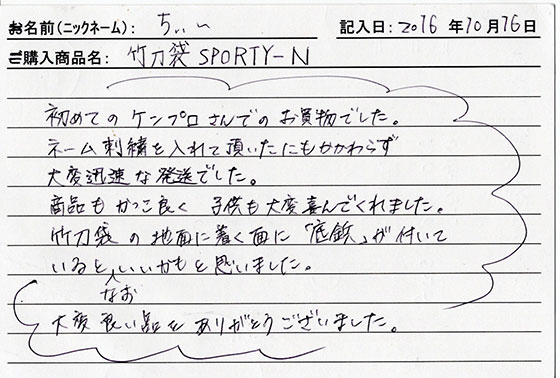 お名前(ニックネーム): ちぃぃ 記入日: 2016年10月16日
ご購入商品名: 竹刀袋 SPORTY-N
初めての ケンプロさんでの お買物でした。
ネーム刺繍を入れて頂いたにもかかわらず
大変迅速な発送でした。
商品も かっこ良く 子供も大変喜んでくれました。
竹刀袋の地面に着く面に「底鋲」が付いて
いると なお いいかもと思いました。
大変良い品を ありがとうございました。